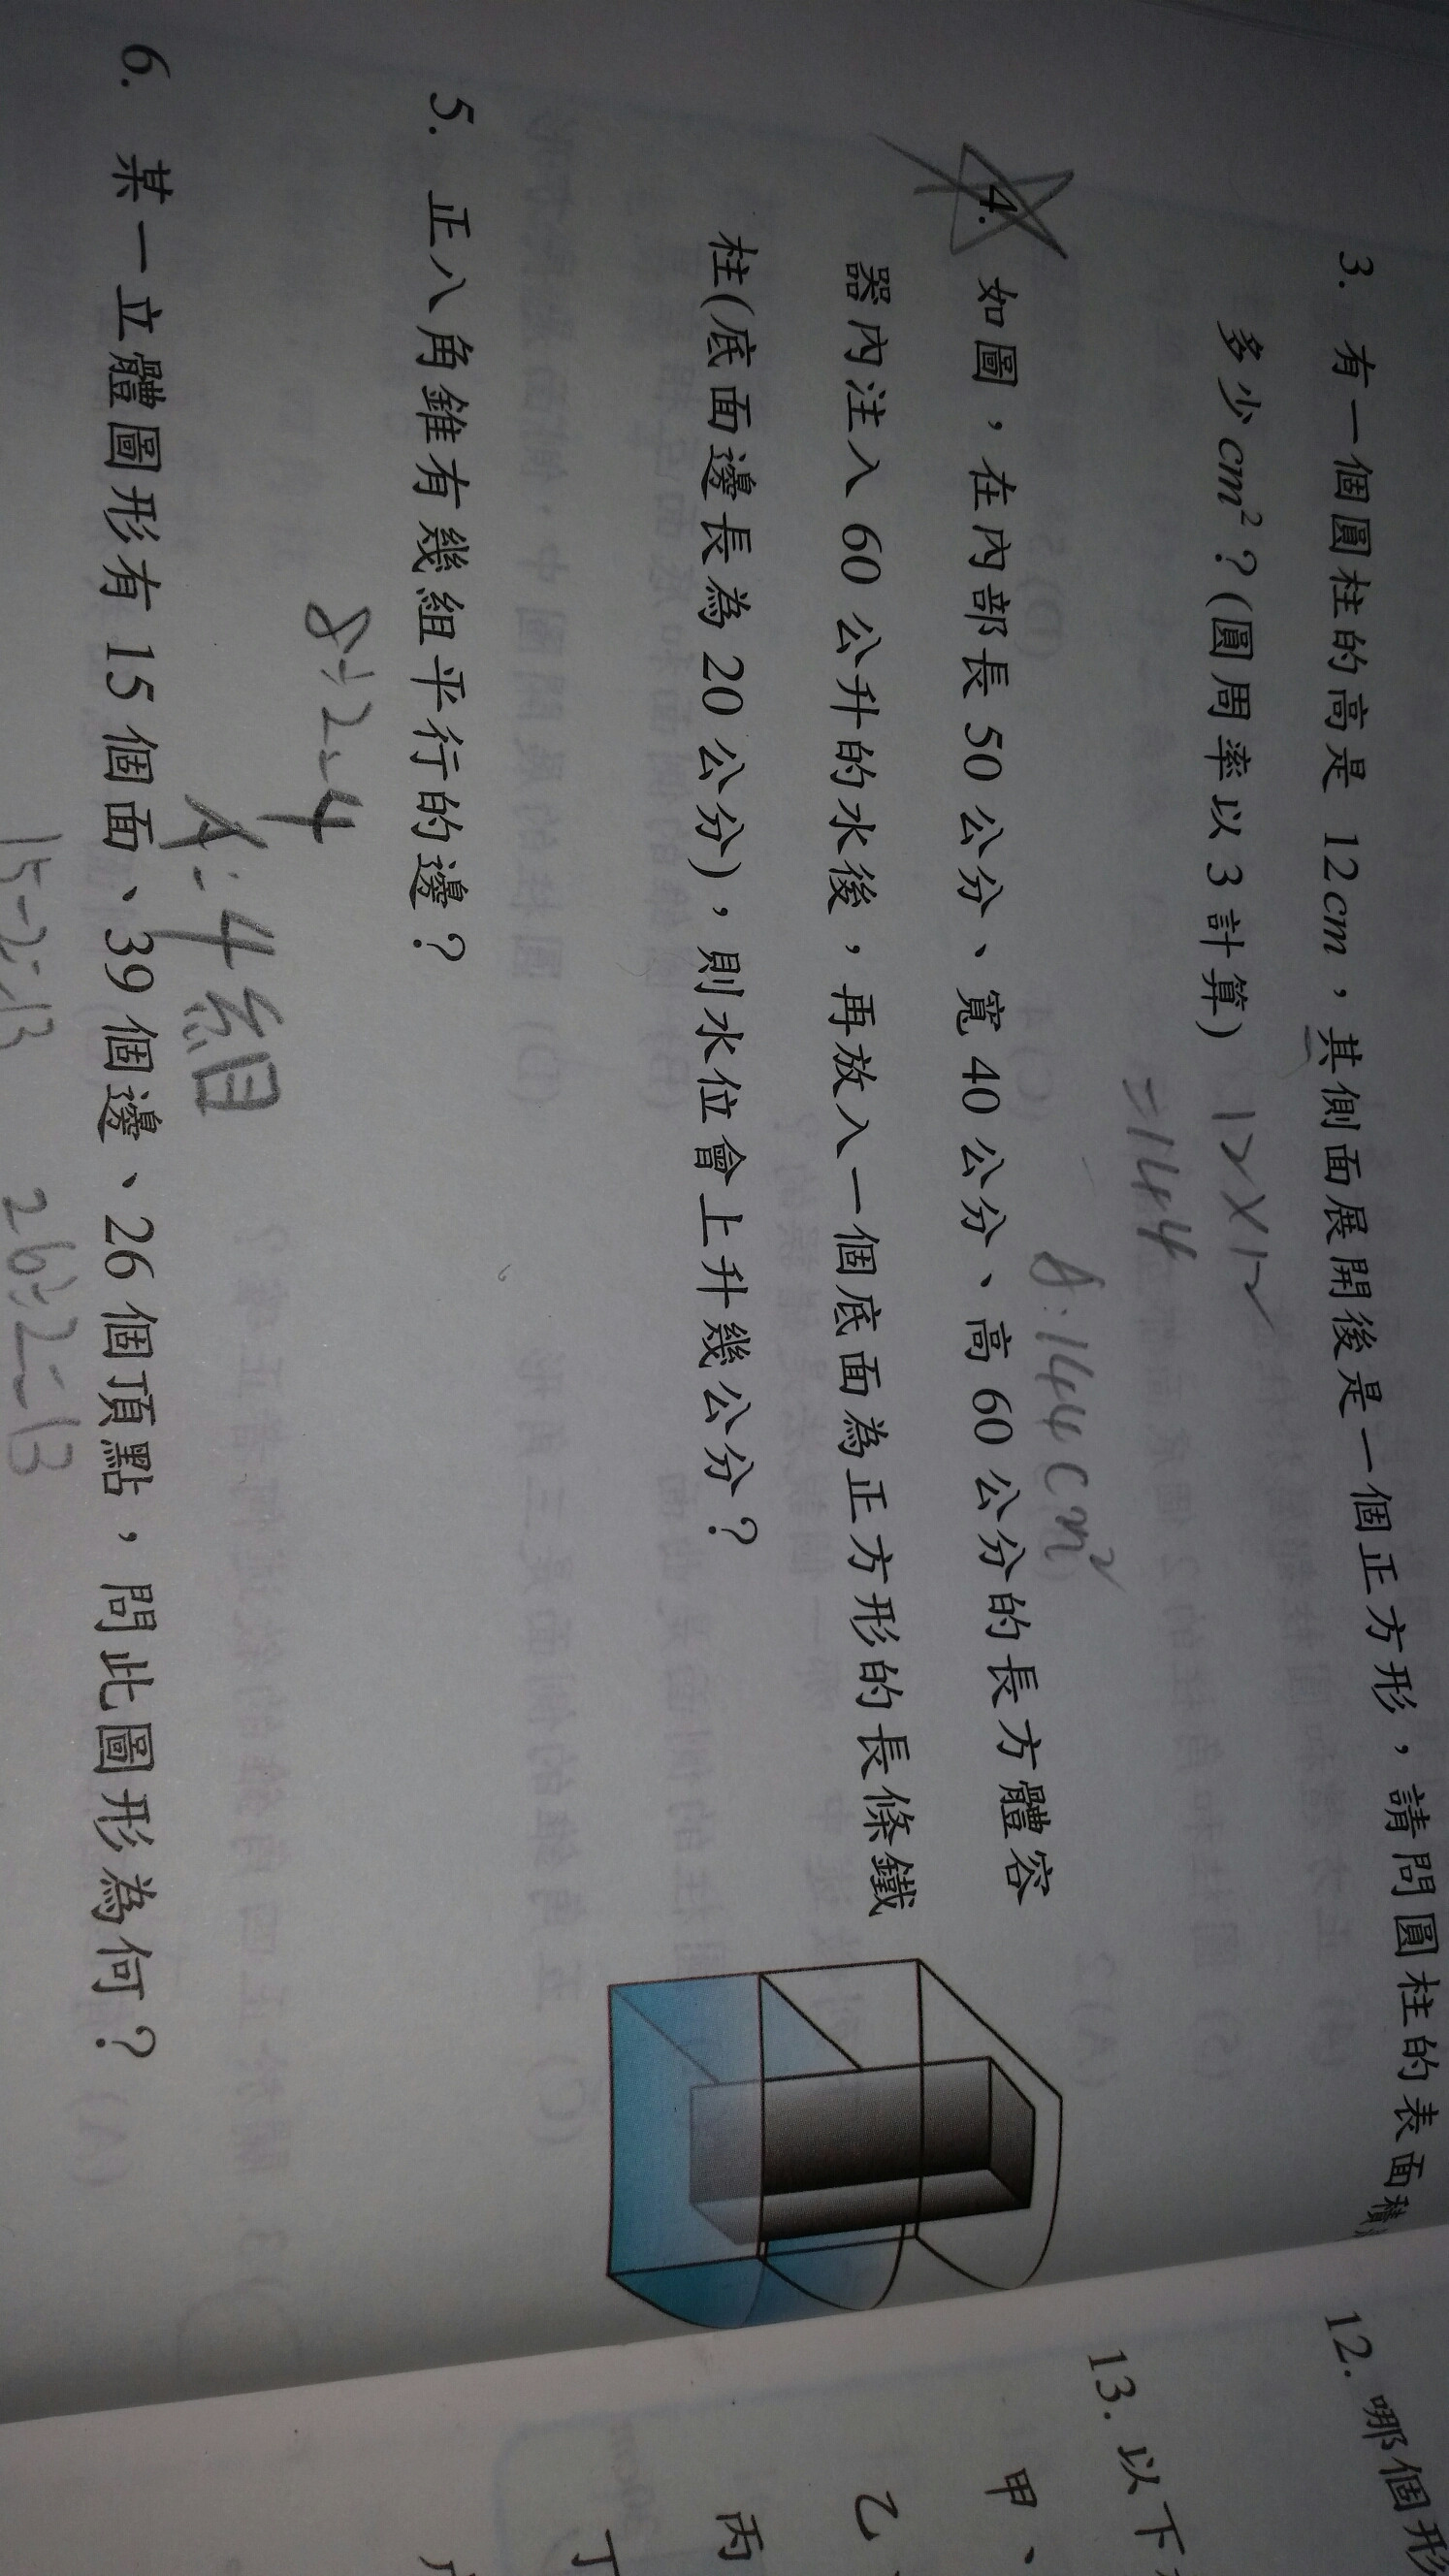 3. 有一個圓柱的高是 12cm，其側面展開後是一個正方形，請問圓柱的表面積
多少cm²？(圓周率以3計算)
12×12
=144
A:144cm²
4. 如圖，在內部長50公分、寬40公分、高60公分的長方體容
器內注入60公升的水後，再放入一個底面為正方形的長條鐵
柱(底面邊長為20公分)，則水位會上升幾公分？
5. 正八角錐有幾組平行的邊？
8÷2=4
A:4組
6. 某一立體圖形有15個面、39個邊、26個頂點，問此圖形為何？
15-2=13
26÷2=13
12. 哪個形
13. 以下
甲、
乙
丙
丁